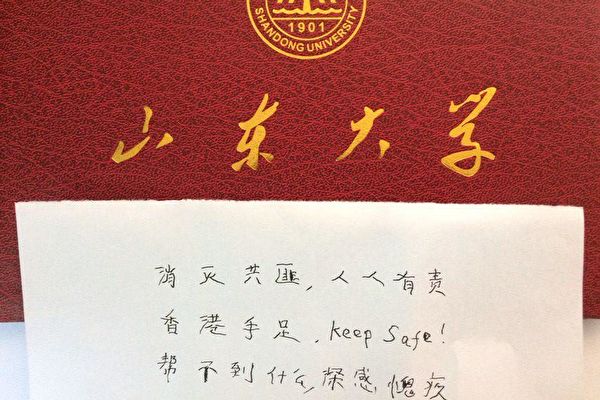 SHANDONG UNIVERSITY
1901
山东大学
消灭共匪,人人有责
香港手足,keep safe!
帮不到什么,深感愧疚